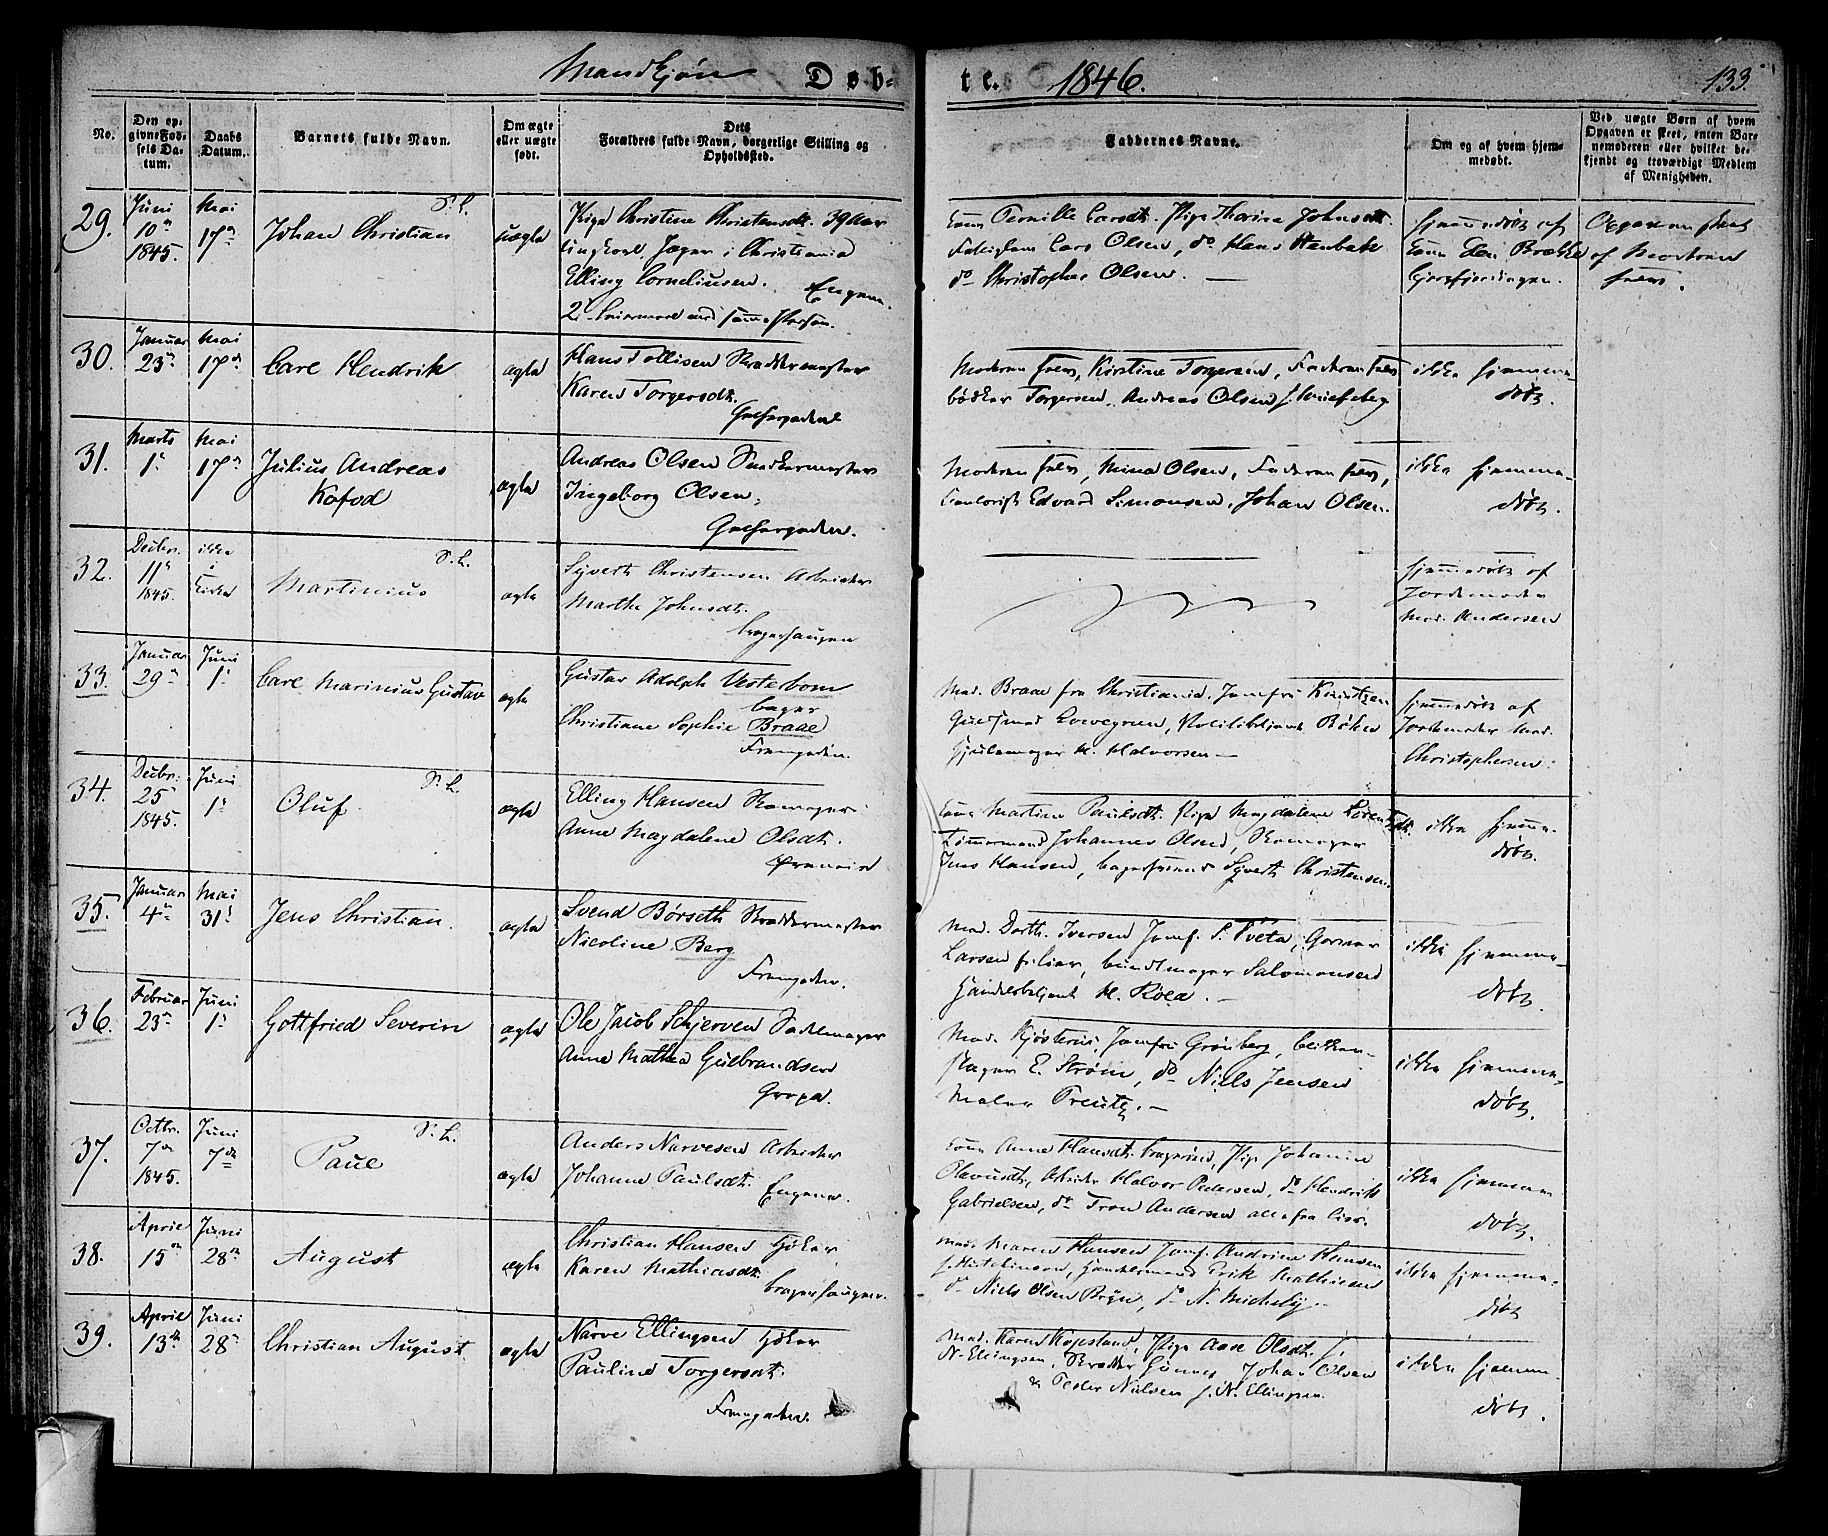 Mandkjøn Døb-
te. 1846. 133.
No.
Den op-
givne Fød-
sels Da-
tum.
Daabs
Datum.
Barnets fulde Navn.
Om ægte
eller uægte
født.
Dets
Forældres fulde Navn, borgerlige Stilling og
Opholdssted.
Faddernes Navne.
Om og af hvem hjem-
medøbt.
Ved uægte Børn af hvem
Opgaven er skeet, enten Bar-
nemoderen eller hvilket be-
kjendt og troværdigt Medlem
af Menigheden.
29.
Juni
10
1845.
Mai
17
S. L.
Johan Christian
uægte
Pige Christine Christensdt. 39 Aar
i Christiania
Elling Corneliusen. Engene.
2
Pernille Larsdt. Pige Thorine Johnsdt.
Lars Olsen, do Hans
do Christopher Olsen.
hjemmedøbt af
Brække
Opgaven skeet
af Moderen
selv.
30.
Januar
23
Mai
17
Carl Hendrik
ægte
Hans Tollisen Skræddermester
Karen Torgersdt.
Moderen selv, Kirstine Torgersen, Faderen selv
bødker Torgersen, Andreas Olsen
ikke hjemme-
døbt.
31.
Marts
1
Mai
17
Julius Andreas
Kofod
ægte
Andreas Olsen Snedkermester
Ingeborg Olsen,
Moderen selv, Mina Olsen, Faderen selv,
Edvard Simonsen, Johan Olsen.
ikke hjemme-
døbt.
32.
Decbr.
11
1845.
ikke
i
Kirke
S. L.
Martinius
ægte
Syvert Christensen Arbeider
Marthe Johnsdt.
Bragerhaugen
hjemmedøbt af
Jordemoder
Mad. Andersen
33.
Januar
29
Juni
1
Carl Marinius Gustav
ægte
Gustav Adolph Vesterbom
bager
Christiane Sophie Braae
Framgaden.
Mad. Braae fra Christiania. Jomfru
Guldsmed Lovegren, Politibetjent Bøhn
Hjulemager H. Halvorsen
hjemmedøbt af
Jordemoder Mad.
Christophersen.
34.
Decbr.
25
1845.
Juni
1
S. L.
Oluf.
ægte
Elling Hansen Skomager
Anne Magdalene Olsdt.
Martine Paulsdt. Pige Magdalene
Tømmermand Johannes Olsen, Skomager
Jens Hansen, Syvert Christensen.
ikke hjemme-
døbt.
35.
Januar
4
Mai
31
Jens Christian.
ægte
Svend Børseth Skræddermester
Nicoline Berg
Framgaden.
Mad. Dorth. Iversen Jomf. S. Tveta, Garver
Larsen bundtmager Salomonsen
Handelsbetjent H. Roed.
ikke hjemme-
døbt.
36.
Februar
23
Juni
1
Gottfried Severin
ægte
Ole Jacob Schjerven Sadelmager
Anne Mathea Gulbrandsen
Mad. Kjøsterud, Jomfru Grønberg, blikken-
slager E. Strøm, do Niels Jensen
Maler Treutz.
ikke hjemme-
døbt.
37.
Octbr.
7
1845.
Juni
7
S. L.
Paul
ægte
Anders Narvesen Arbeider
Johanne Paulsdt. Engene.
Anne Hansdt. Pige Johanne
Olavusdt, Arbeider Halvor Pedersen, do Hendrik
Gabrielsen, do Tron Andersen alle fra Lier.
ikke hjemme
døbt.
38.
April
15
Juni
28
August
ægte
Christian Hansen Høker
Karen Mathiasdt.
Bragerhaugen.
Mad. Maren Hansen Jomf. Andrine Hansen
Handelsmand Erik Mathiesen
do Niels Olsen Bryn, do N. Michelsen
ikke hjemme-
døbt
39.
April
13
Juni
28
Christian August
ægte
Narve Ellingsen Høker
Pauline Torgersdt.
Framgaden.
Mad. Karen Kopstad, Pige Aase Olsdt.
N. Ellingsen, Johan Olsen
& Peder Nielsen N. Ellingsen.
ikke hjemme-
døbt.